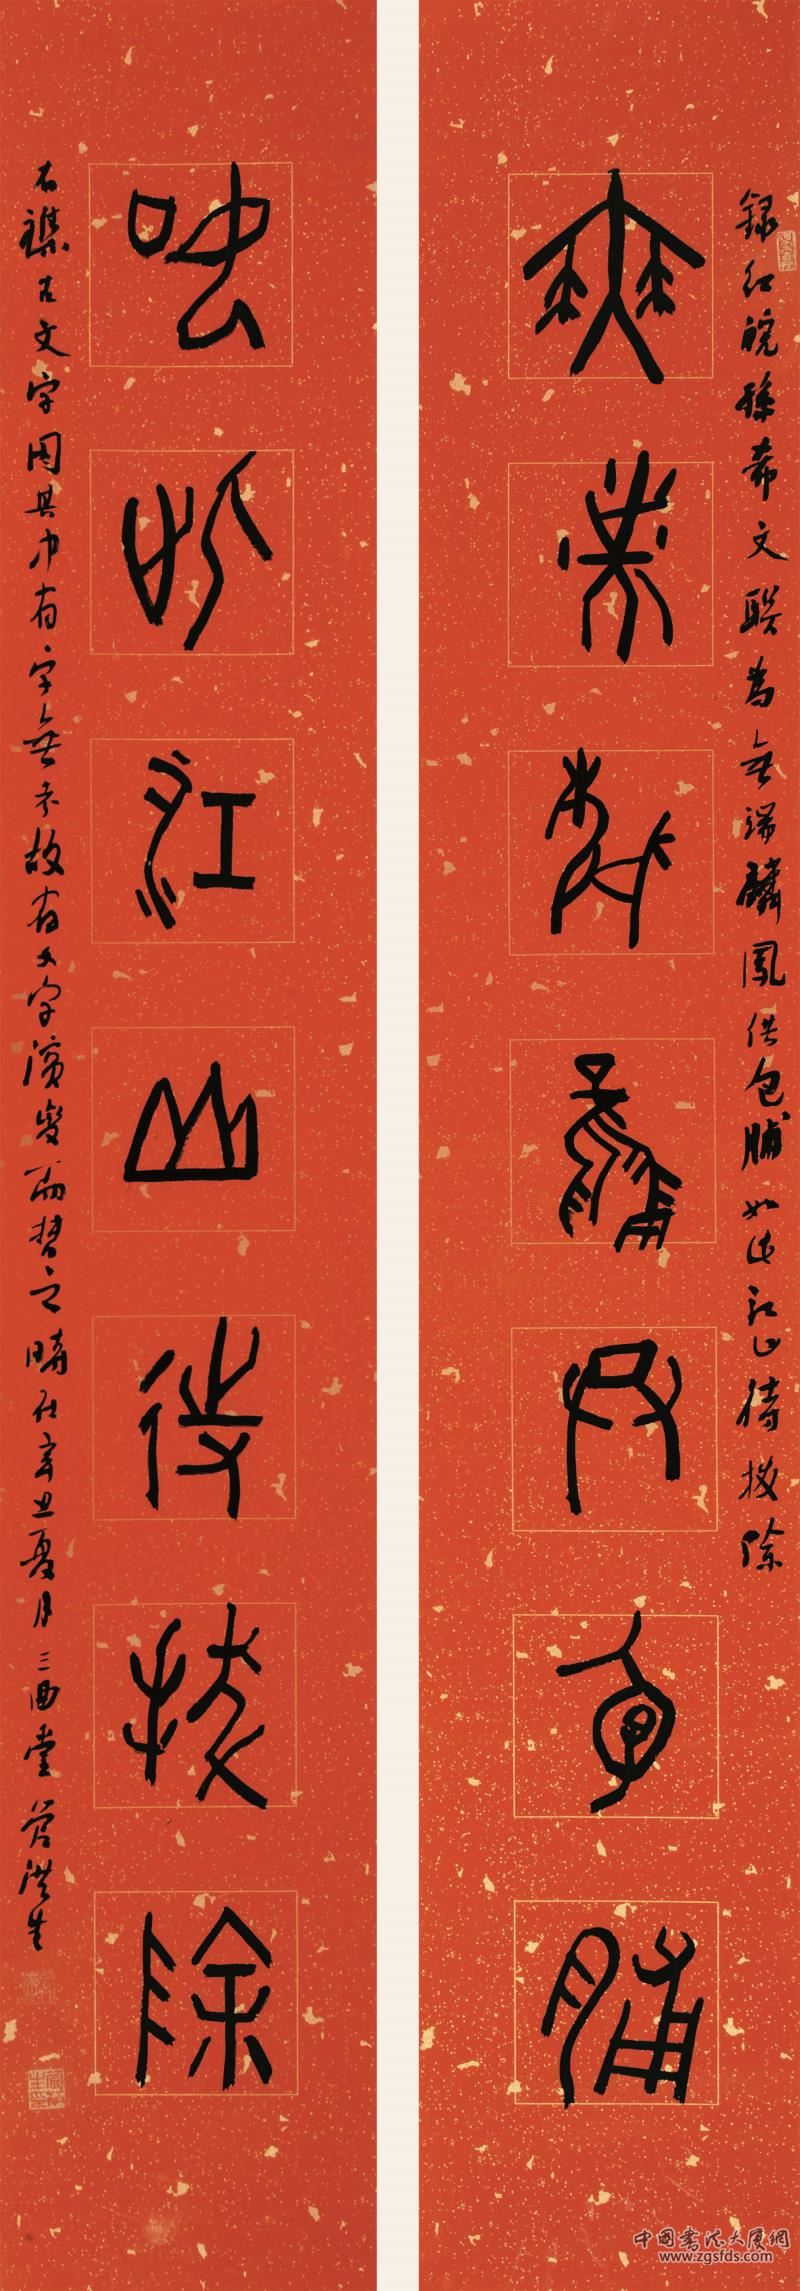 録皖孫希文聯為無端麟鳳供包脯如此江山待拔除
無端麟鳳供包脯
如此江山待拔除
右襍古文字因其中有字無考故有文字演變而替之時在辛丑夏月三酉堂管洪生
中國書法大厦網
www.zgsfds.com